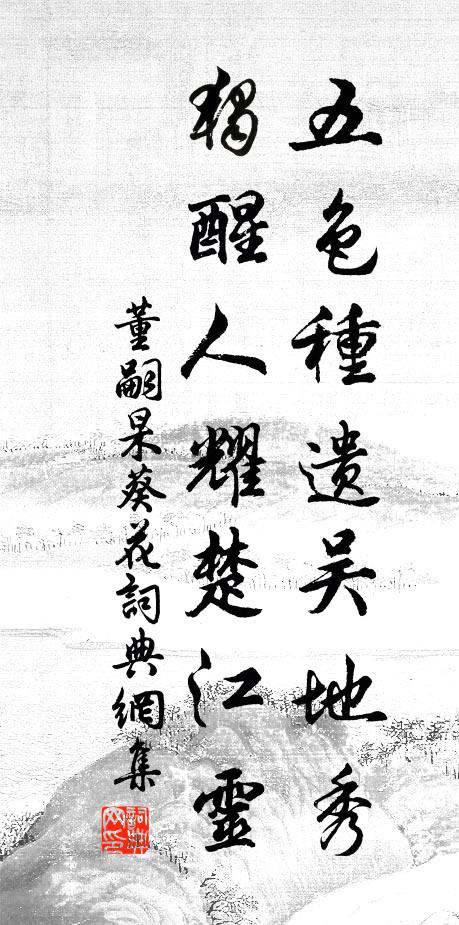 五色種遺吳地秀
獨醒人耀楚江靈
董嗣杲葵花詞典網集